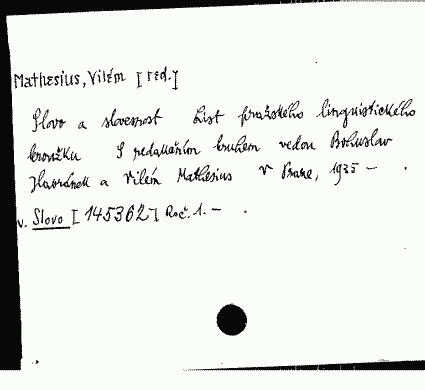 Mathesius, Vilém [red.]
Slovo a slovesnost List pražského linguistického
kroužku S redakčním kruhem vedou Bohuslav
Havránek a Vilém Mathesius V Praze, 1935 – .
v. Slovo [145362] Roč. 1. – .